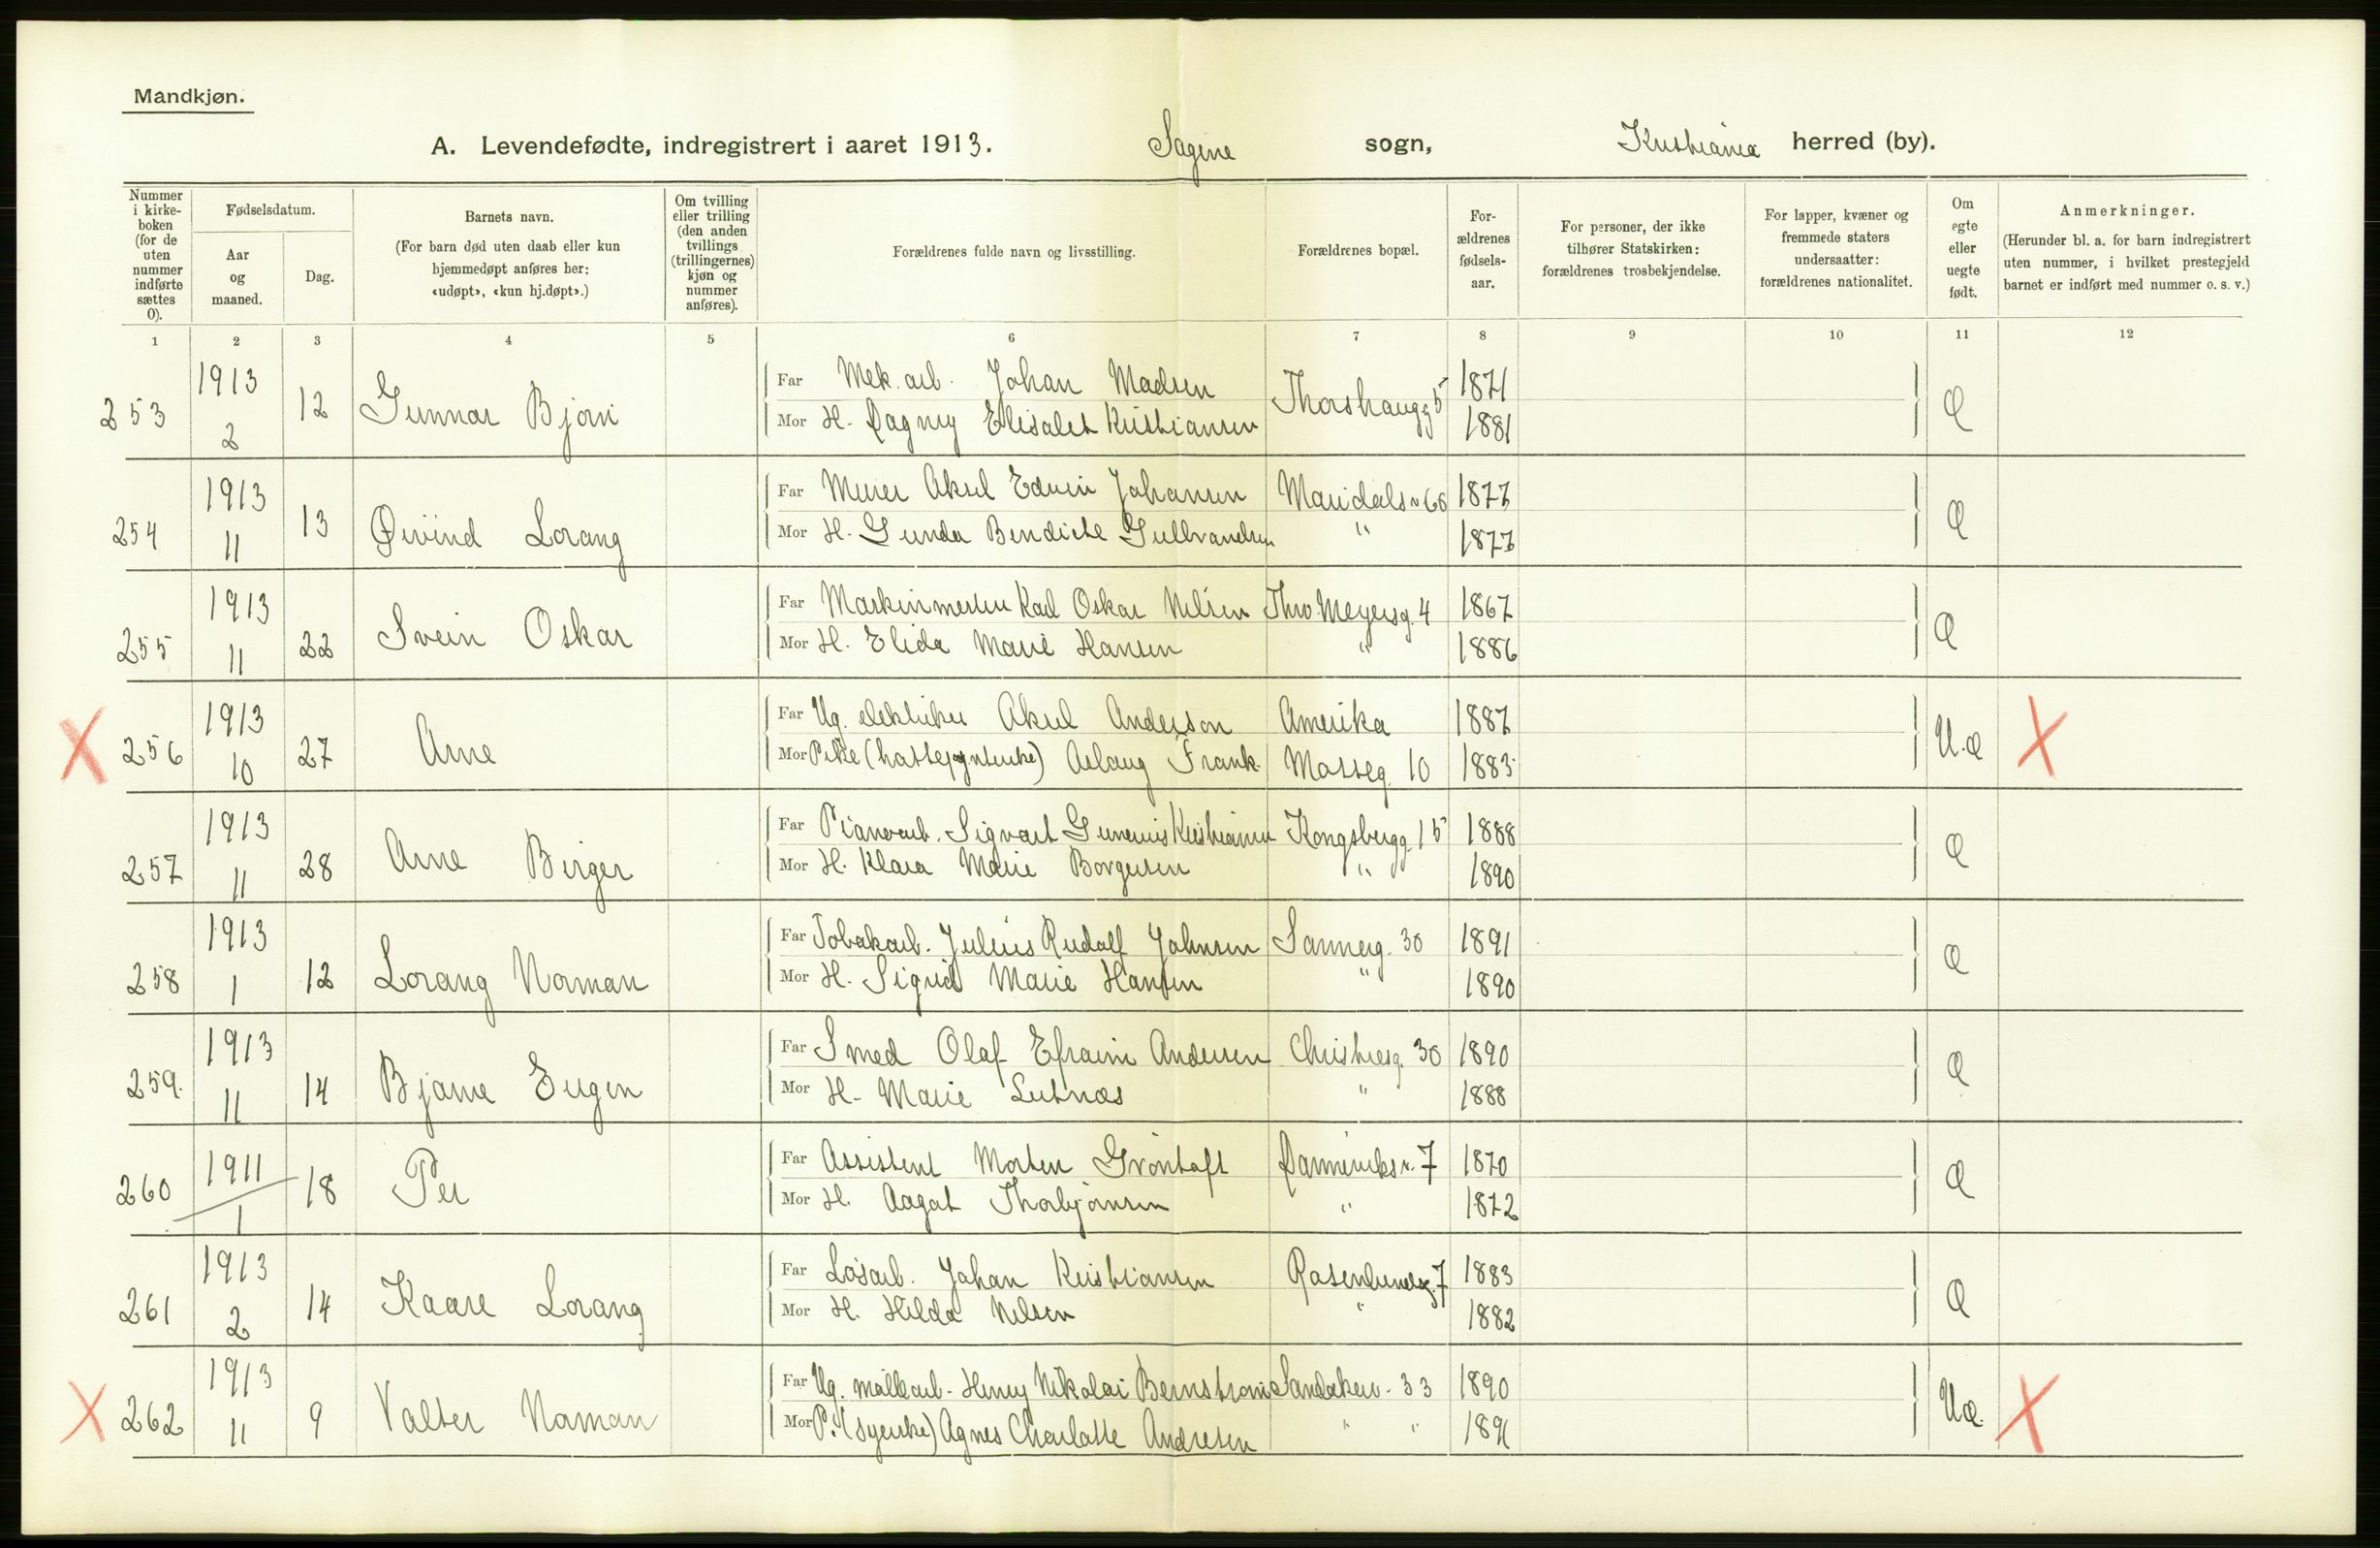 Mandkjøn.
A. Levendefødte, indregistrert i aaret 1913. Sagene sogn, Kristiania herred (by).
Nummer i kirkeboken (for de uten nummer indførte sættes 0).
Fødselsdatum.
Aar og maaned.
Dag.
Barnets navn.
(For barn død uten daab eller kun hjemmedøpt anføres her: «udøpt», «kun hj.døpt».)
Om tvilling eller trilling (den anden tvillings (trillingernes) kjøn og nummer anføres).
Forældrenes fulde navn og livsstilling.
Forældrenes bopæl.
Forældrenes fødselsaar.
For personer, der ikke tilhører Statskirken: forældrenes trosbekjendelse.
For lapper, kvæner og fremmede staters undersaatter: forældrenes nationalitet.
Om egte eller uegte født.
Anmerkninger.
(Herunder bl. a. for barn indregistrert uten nummer, i hvilket prestegjeld barnet er indført med nummer o. s. v.)
1 2 3 4 5 6 7 8 9 10 11 12
253 1913 2 12 Gunnar Bjørn Far Mek. arb. Johan Madsen Thorshaugg 5 1871 Æ
Mor H. Dagny Elisabet Kristiansen 1881
254 1913 11 13 Øivind Lorang Far Murer Aksel Edvin Johansen Maridalsv 66 1877 Æ
Mor H. Gunda Bendicte Gulbrandsen " 1877
255 1913 11 22 Svein Oskar Far Maskinmester Karl Oskar Nilsen Thv. Meyersg. 4 1867 Æ
Mor H. Elida Marie Hansen " 1886
X 256 1913 10 27 Arne Far Ug. elektriker Aksel Anderson Amerika 1887 U.æ X
Mor Pike Aslaug Frank. Mosseg. 10 1883
257 1913 11 28 Arne Birger Far Pianoarb. Sigvart Gunerius Kristiansen Kongsbergg. 15 1888 Æ
Mor H. Klara Marie Borgersen " 1890
258 1913 1 12 Lorang Norman Far Tobakarb. Julius Rudolf Johnsen Sannerg. 30 1891 Æ
Mor H. Sigrid Marie Hansen " 1890
259. 1913 11 14 Bjarne Eugen Far Smed Olaf Efraim Andersen Christiesg. 30 1890 Æ
Mor H. Marie Lutnæs " 1888
260 1911 1 18 Per Far Assistent Morten Grøntoft Dannevirksv. 7 1870 Æ
Mor H. Aagat Thorbjørnsen " 1872
261 1913 2 14 Kaare Lorang Far Løsarb. Johan Kristiansen Rosenlundg. 7 1883 Æ
Mor H. Hilda Nilsen " 1882
X 262 1913 11 9 Valter Norman Far Ug. møllearb. Henry Nikolai Bernstrøm Sandakerv. 33 1890 Uæ. X
Mor P. (syerske) Agnes Charlotte Andresen " " 1891